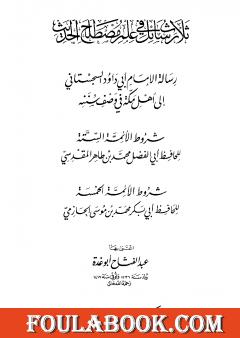 ثلاث رسائل في علم مصطلح الحديث
رسالة الإمام أبي داود السجستاني
إلى أهل مكة في وصف سننه
شروط الأئمة الستة
للحافظ أبي الفضل محمد بن طاهر المقدسي
شروط الأئمة الخمسة
للحافظ أبي بكر محمد بن موسى الحازمي
اعتنى بها
عبد الفتاح أبو غدة
FOULABOOK.COM